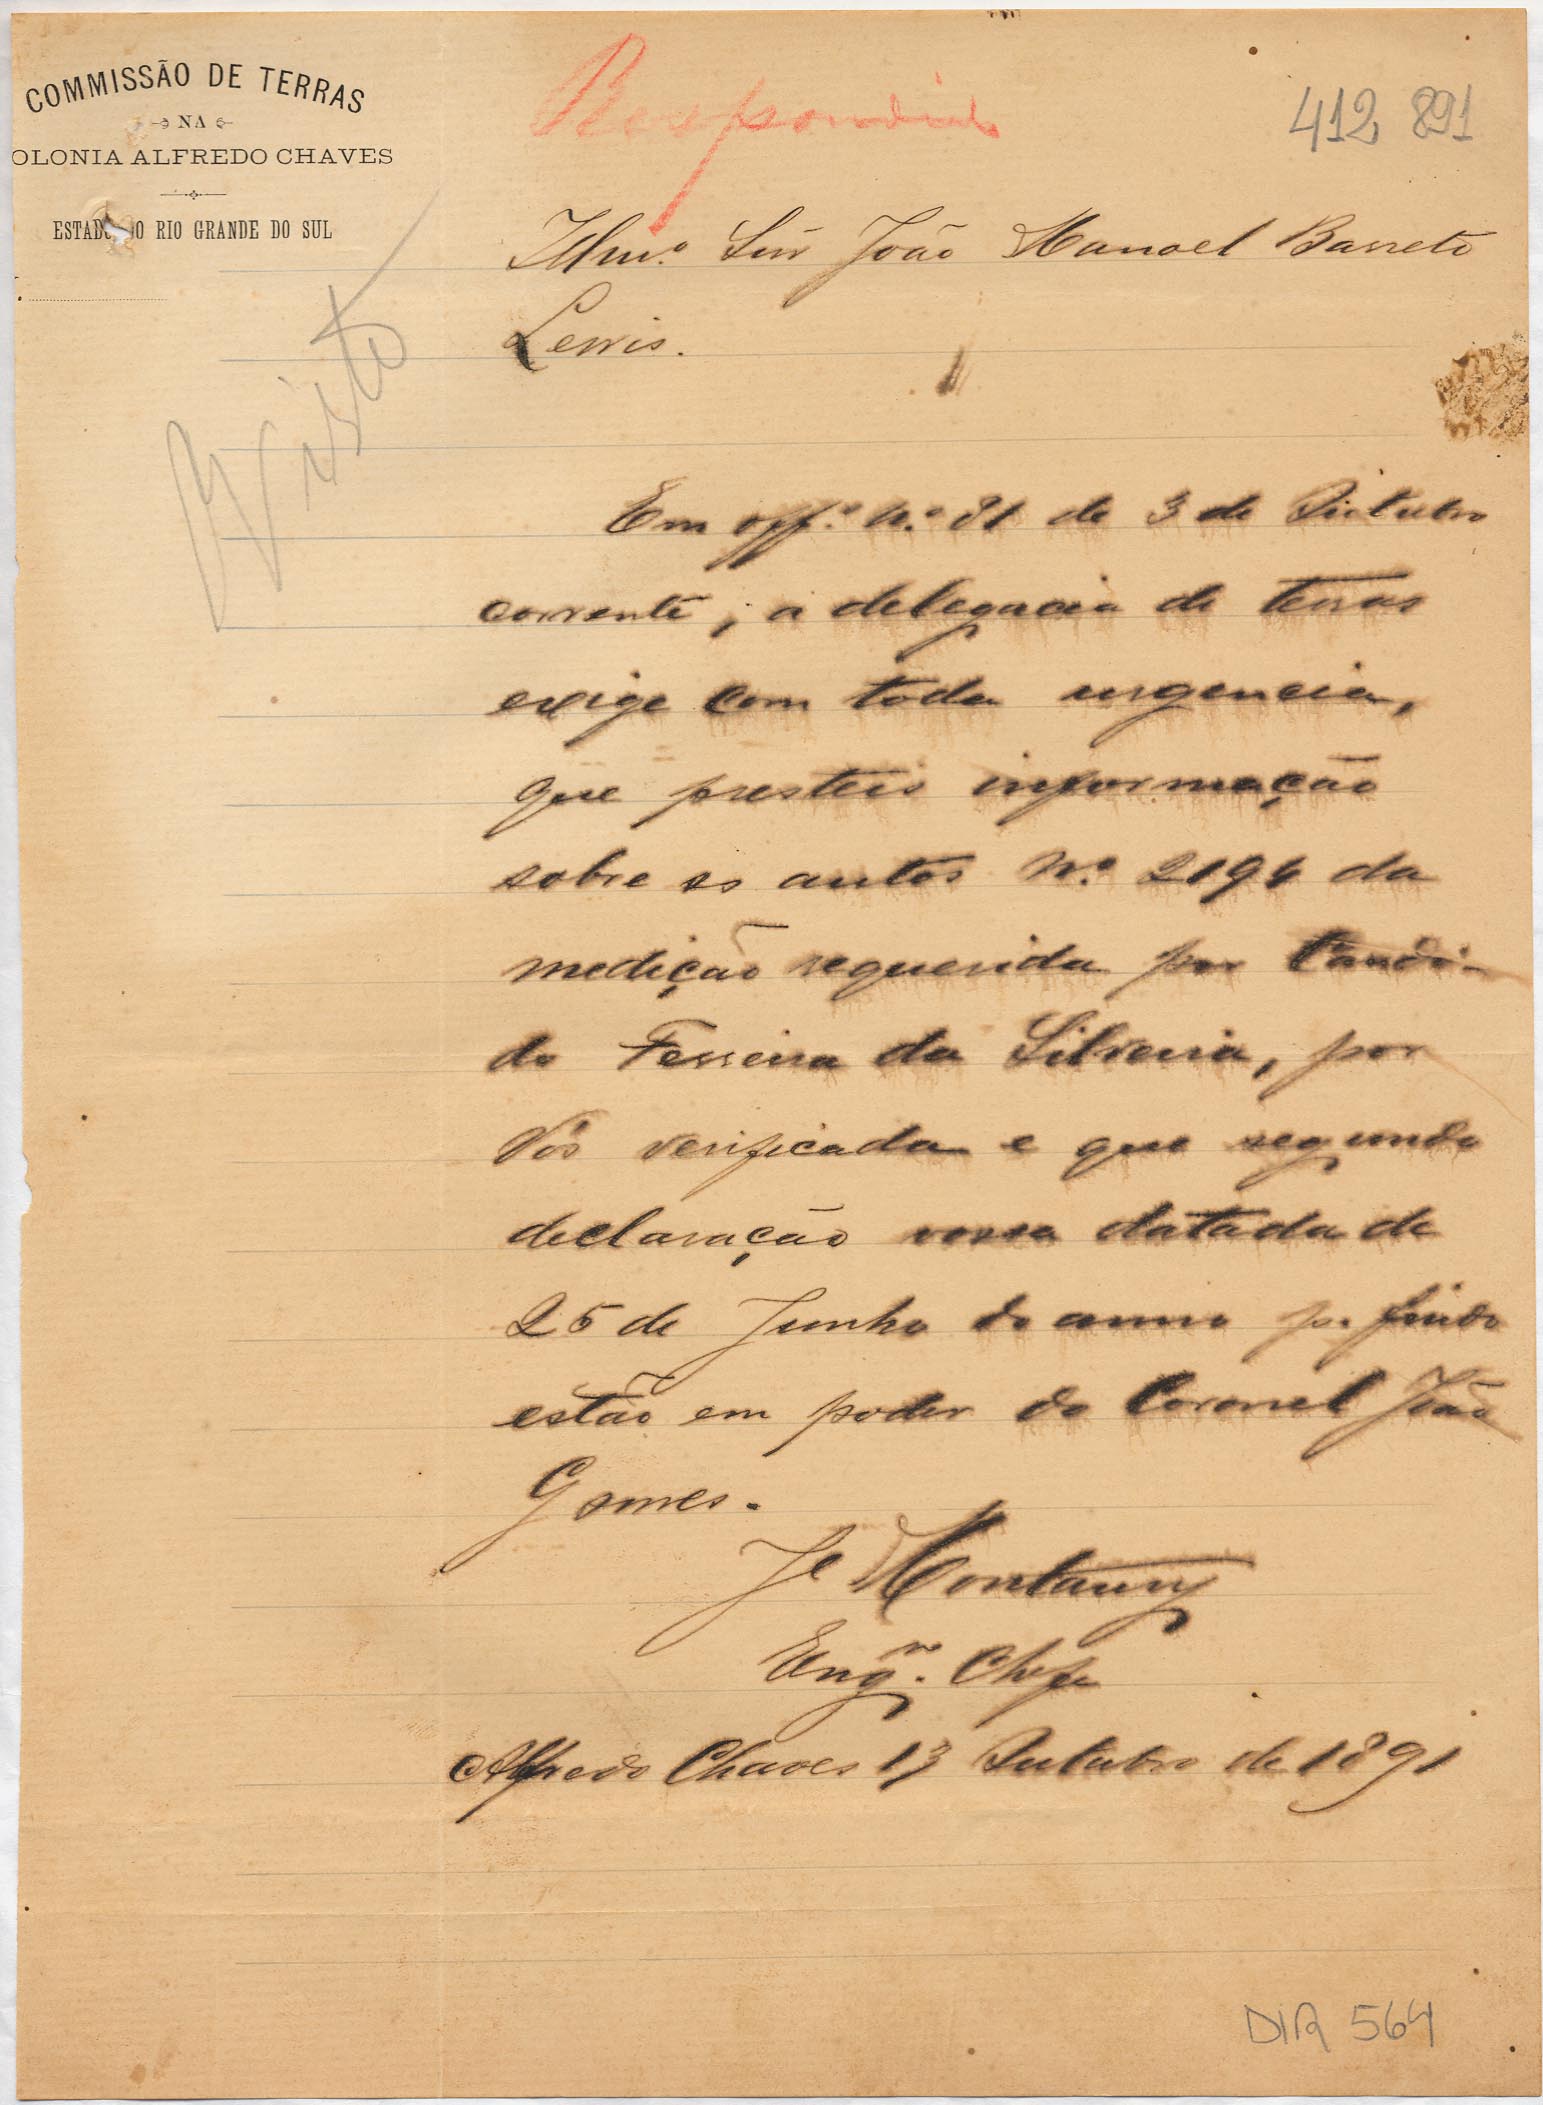 COMMISSÃO DE TERRAS
NA
OLONIA ALFREDO CHAVES
ESTADO DO RIO GRANDE DO SUL
Respondido
412 891
Visto
Illmo. Snr João Manoel Barreto
Lewis.
Em offo. No. 81 de 3 de Outubro
corrente, a delegacia de terras
exige com toda urgencia,
que presteis informação
sobre os autos No. 2194 da
medição requerida por Candi-
do Ferreira da Silveira, por
Vós verificada e que segundo
declaração vossa datada de
25 de Junho do anno p. findo
estão em poder do Coronel João
Gomes.
Je Montaury
Engro. Chefe
Alfredo Chaves 13 Outubro de 1891
DIR 564